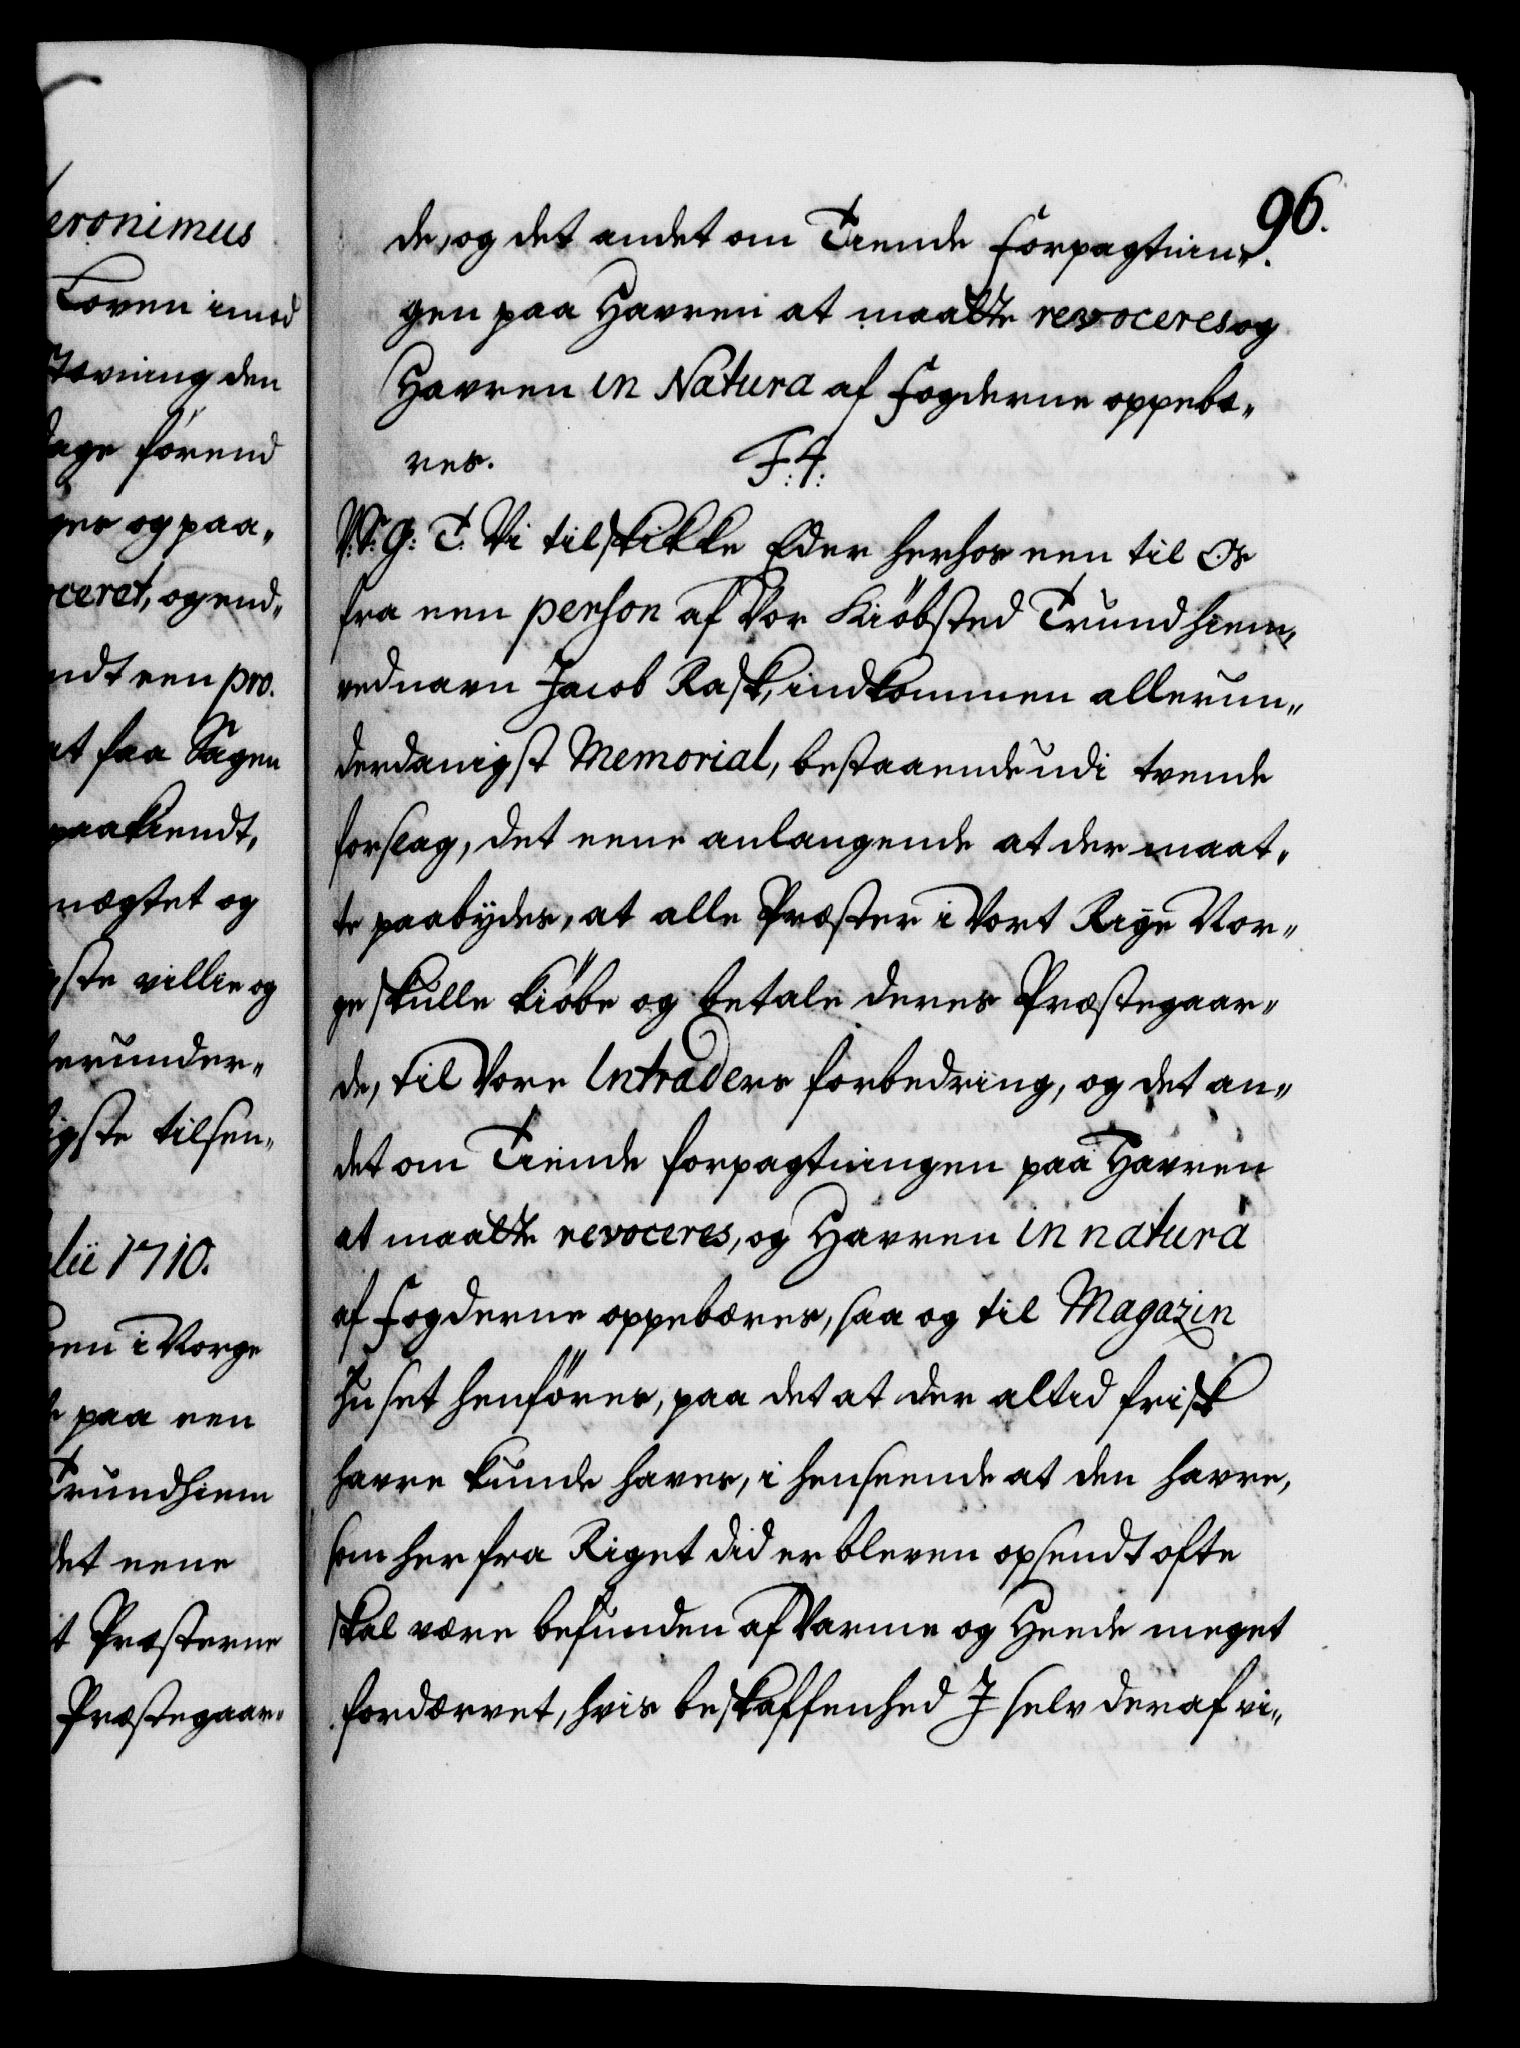 eronimus
Loven imod
Stevning den
dage førend
ger og paa„
oceret, og end„
ndt een pro.
at faa Sagen
paakiendt,
mægtet og
gste villie og
lerunder„
igste tilsen„
lii 1710.
gen i Norge
paa een
Trundhiem
det eene
at Præsterne
Præstegaar„
96.
de, og det andet om Tiende Forpagtnin„
gen paa Havren at maatte revoceres og
Havren in Natura af Fogderne oppebæ„
res. F: 4:
V: V: G: T. Vi tilskikke Eder herhos een til Os
fra een person af Vor Kiøbsted Trundhiem,
ved navn Jacob Rask, indkommen allerun„
derdanigst Memorial, bestaaende udi tvende
forslag, det eene anlangende at der maat„
te paabydes, at alle Præster i Vort Rige Nor„
ge skulle kiøbe og betale deres Præstegaar„
de, til Vore Intraders forbedring, og det an„
det om Tiende forpagtningen paa Havren
at maatte revoceres, og Havren in natura
af Fogderne oppebæres, saa og til Magazin
Huset henføres, paa det at der altid frisk
havre kunde haves, i henseende at den havre,
som her fra Riget did er bleven opsendt ofte
skal være befunden af Varme og Heede meget
fordærvet, hvis beskaffenhed I selv deraf vi„